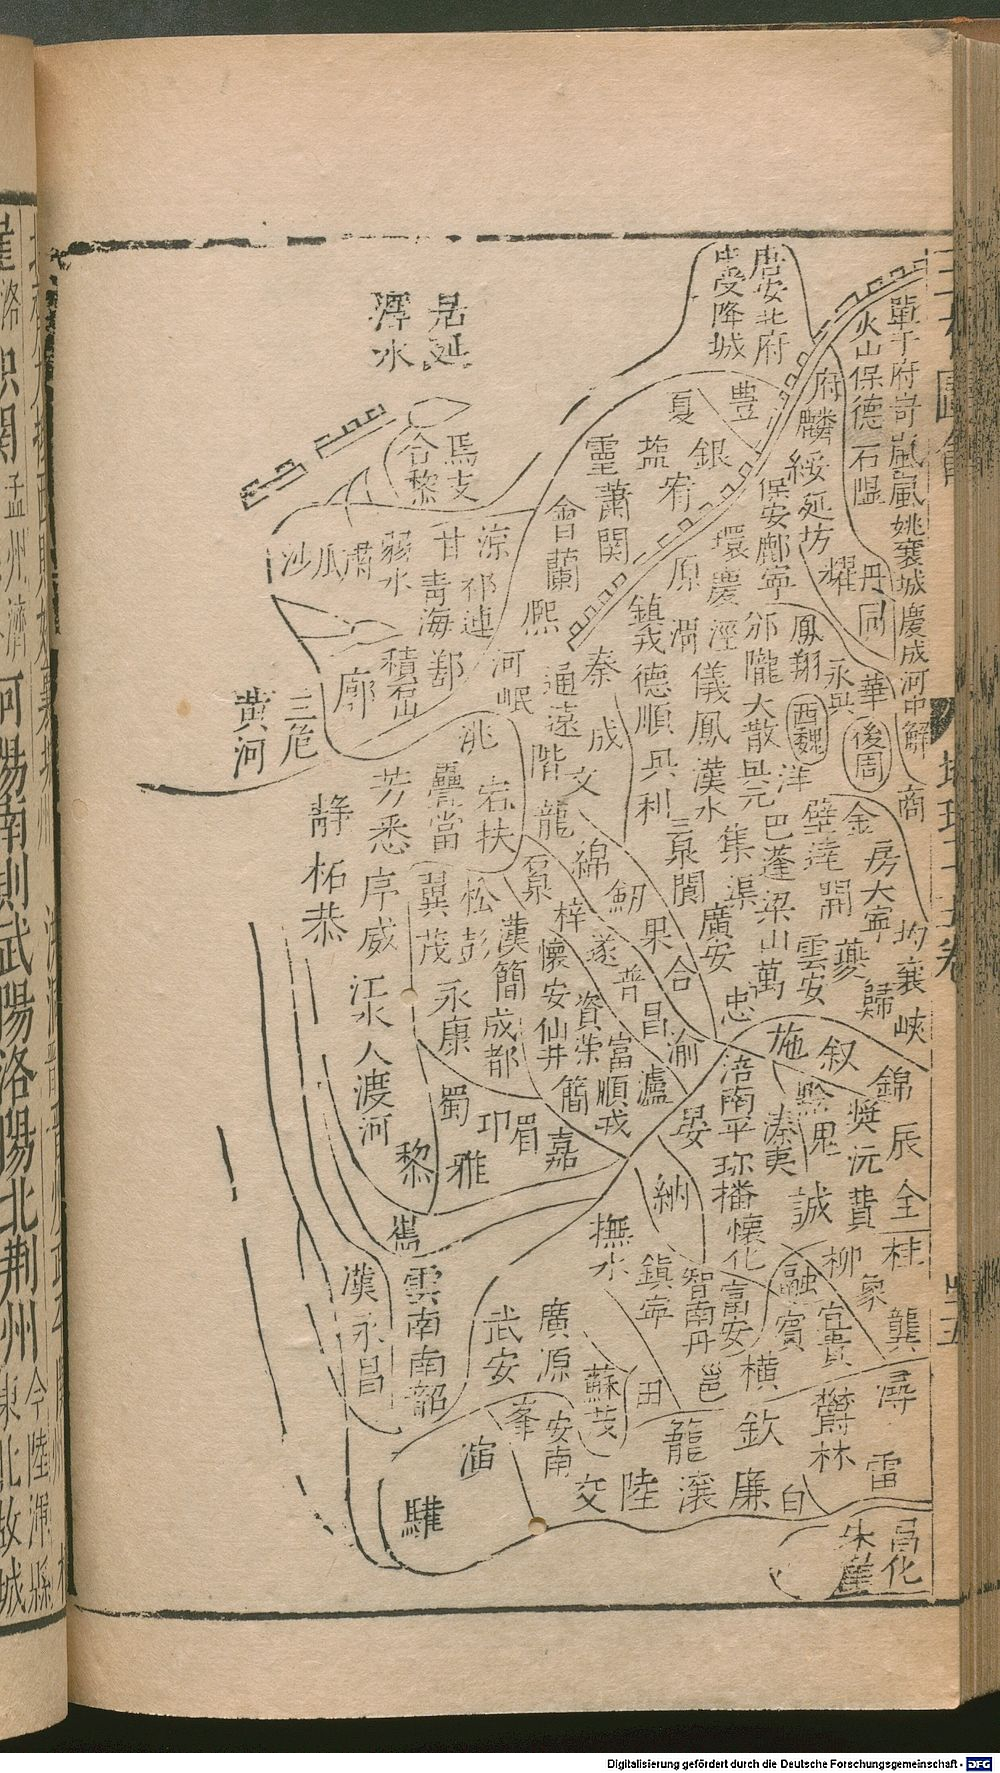 單于府岢嵐嵐姚襄城慶成河中解
商
均襄峽
錦辰全桂
龔
潯
雷
昌化
火山保德石隰
丹同
華
後周
金房大寧
歸
獎沅費
柳象
宜貴
鬱林
朱崖
府麟綏延坊耀
鳳翔永興
西魏
洋
壁達開夔
雲安
施叙
黔思
誠
融賓
白
唐安北府
中受降城
豊
夏
銀
保安鄜寧
環慶涇
邠隴大散興元巴蓬梁山萬
忠
涪南平珎播懷化
溱夷
富安
橫
欽
廉
塩宥
原渭儀鳳漢水集渠
廣安
靈蕭關
鎮戎德順興利三泉閬
果合
渝
瀘
晏
納
鎮寧
智南丹
邕
田
籠
瀼
陸
交
會蘭
熙
秦成文龍
綿
通遠階
河岷
洮宕扶
石泉
梓遂普昌
富順戎
懷安仙井簡
資榮
嘉
漢簡成都
松彭
翼茂永康
蜀
邛眉
雅
黎
嶲
撫水
廣原
武安
蘇茂
安南
峯
演
驩
雲南南詔
漢永昌
涼祁連鄯
甘青海
積石山
廓
疊當
芳悉
弱水
肅瓜沙
焉支
合黎
居延
澤水
三危
黃河
靜柘恭
威
江水
大渡河
Digitalisierung gefördert durch die Deutsche Forschungsgemeinschaft - DFG
枳關孟州濟
河陽南則武陽洛陽北荆州
今陸渾縣
東北故城